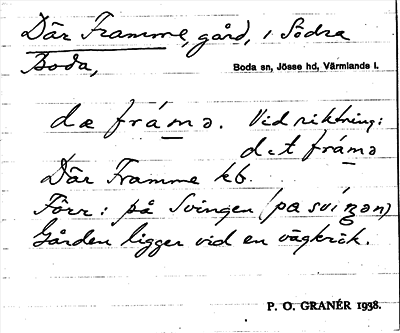 Där Framme, gård, i Södra
Boda,
Boda sn, Jösse hd, Värmlands l.
dæ frámə. Vid riktning:
d:t frámə
Där Framme kb.
Förr: på Svingen (pa svíŋən)
Gården ligger vid en vägkrök.
P. O. GRANÉR 1938.